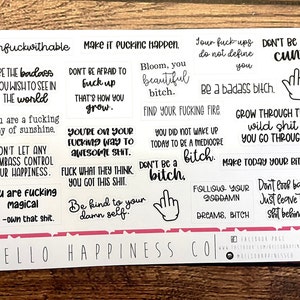 nfuckwithable
Make it fucking happen.
Your fuck-ups
do not define
you
DON'T BE
CUN
BE THE badass
YOU WISH TO SEE IN
THE world
DON'T BE AFRAID TO
fuck up
THAT'S HOW YOU
GROW.
Bloom, you
beautiful
bitch.
Be a badass bitch.
ou are a fucking
ay of sunshine.
FIND YOUR FUCKING FIRE.
GROW THROUGH T
wild shit
YOU GO THROUGH
YOU'RE ON YOUR
FUCKING WAY TO
AWESOME SHIT.
YOU DID NOT WAKE UP
TODAY TO BE A MEDIOCRE
bitch.
DON'T LET ANY
MBASS CONTROL
YOUR HAPPINESS.
FUCK WHAT THEY THINK
YOU GOT THIS SHIT.
DON'T BE A
bitch.
MAKE TODAY YOUR BIT
OU ARE FUCKING
magical
-own that shit.
Be kind to your
damn self.
FOLLOW YOUR
GODDAMN
DREAMS, BITCH
Don't look ba
Just leave
shit behin
ELLO HAPPINESS CO
FACEBOOK PAGE